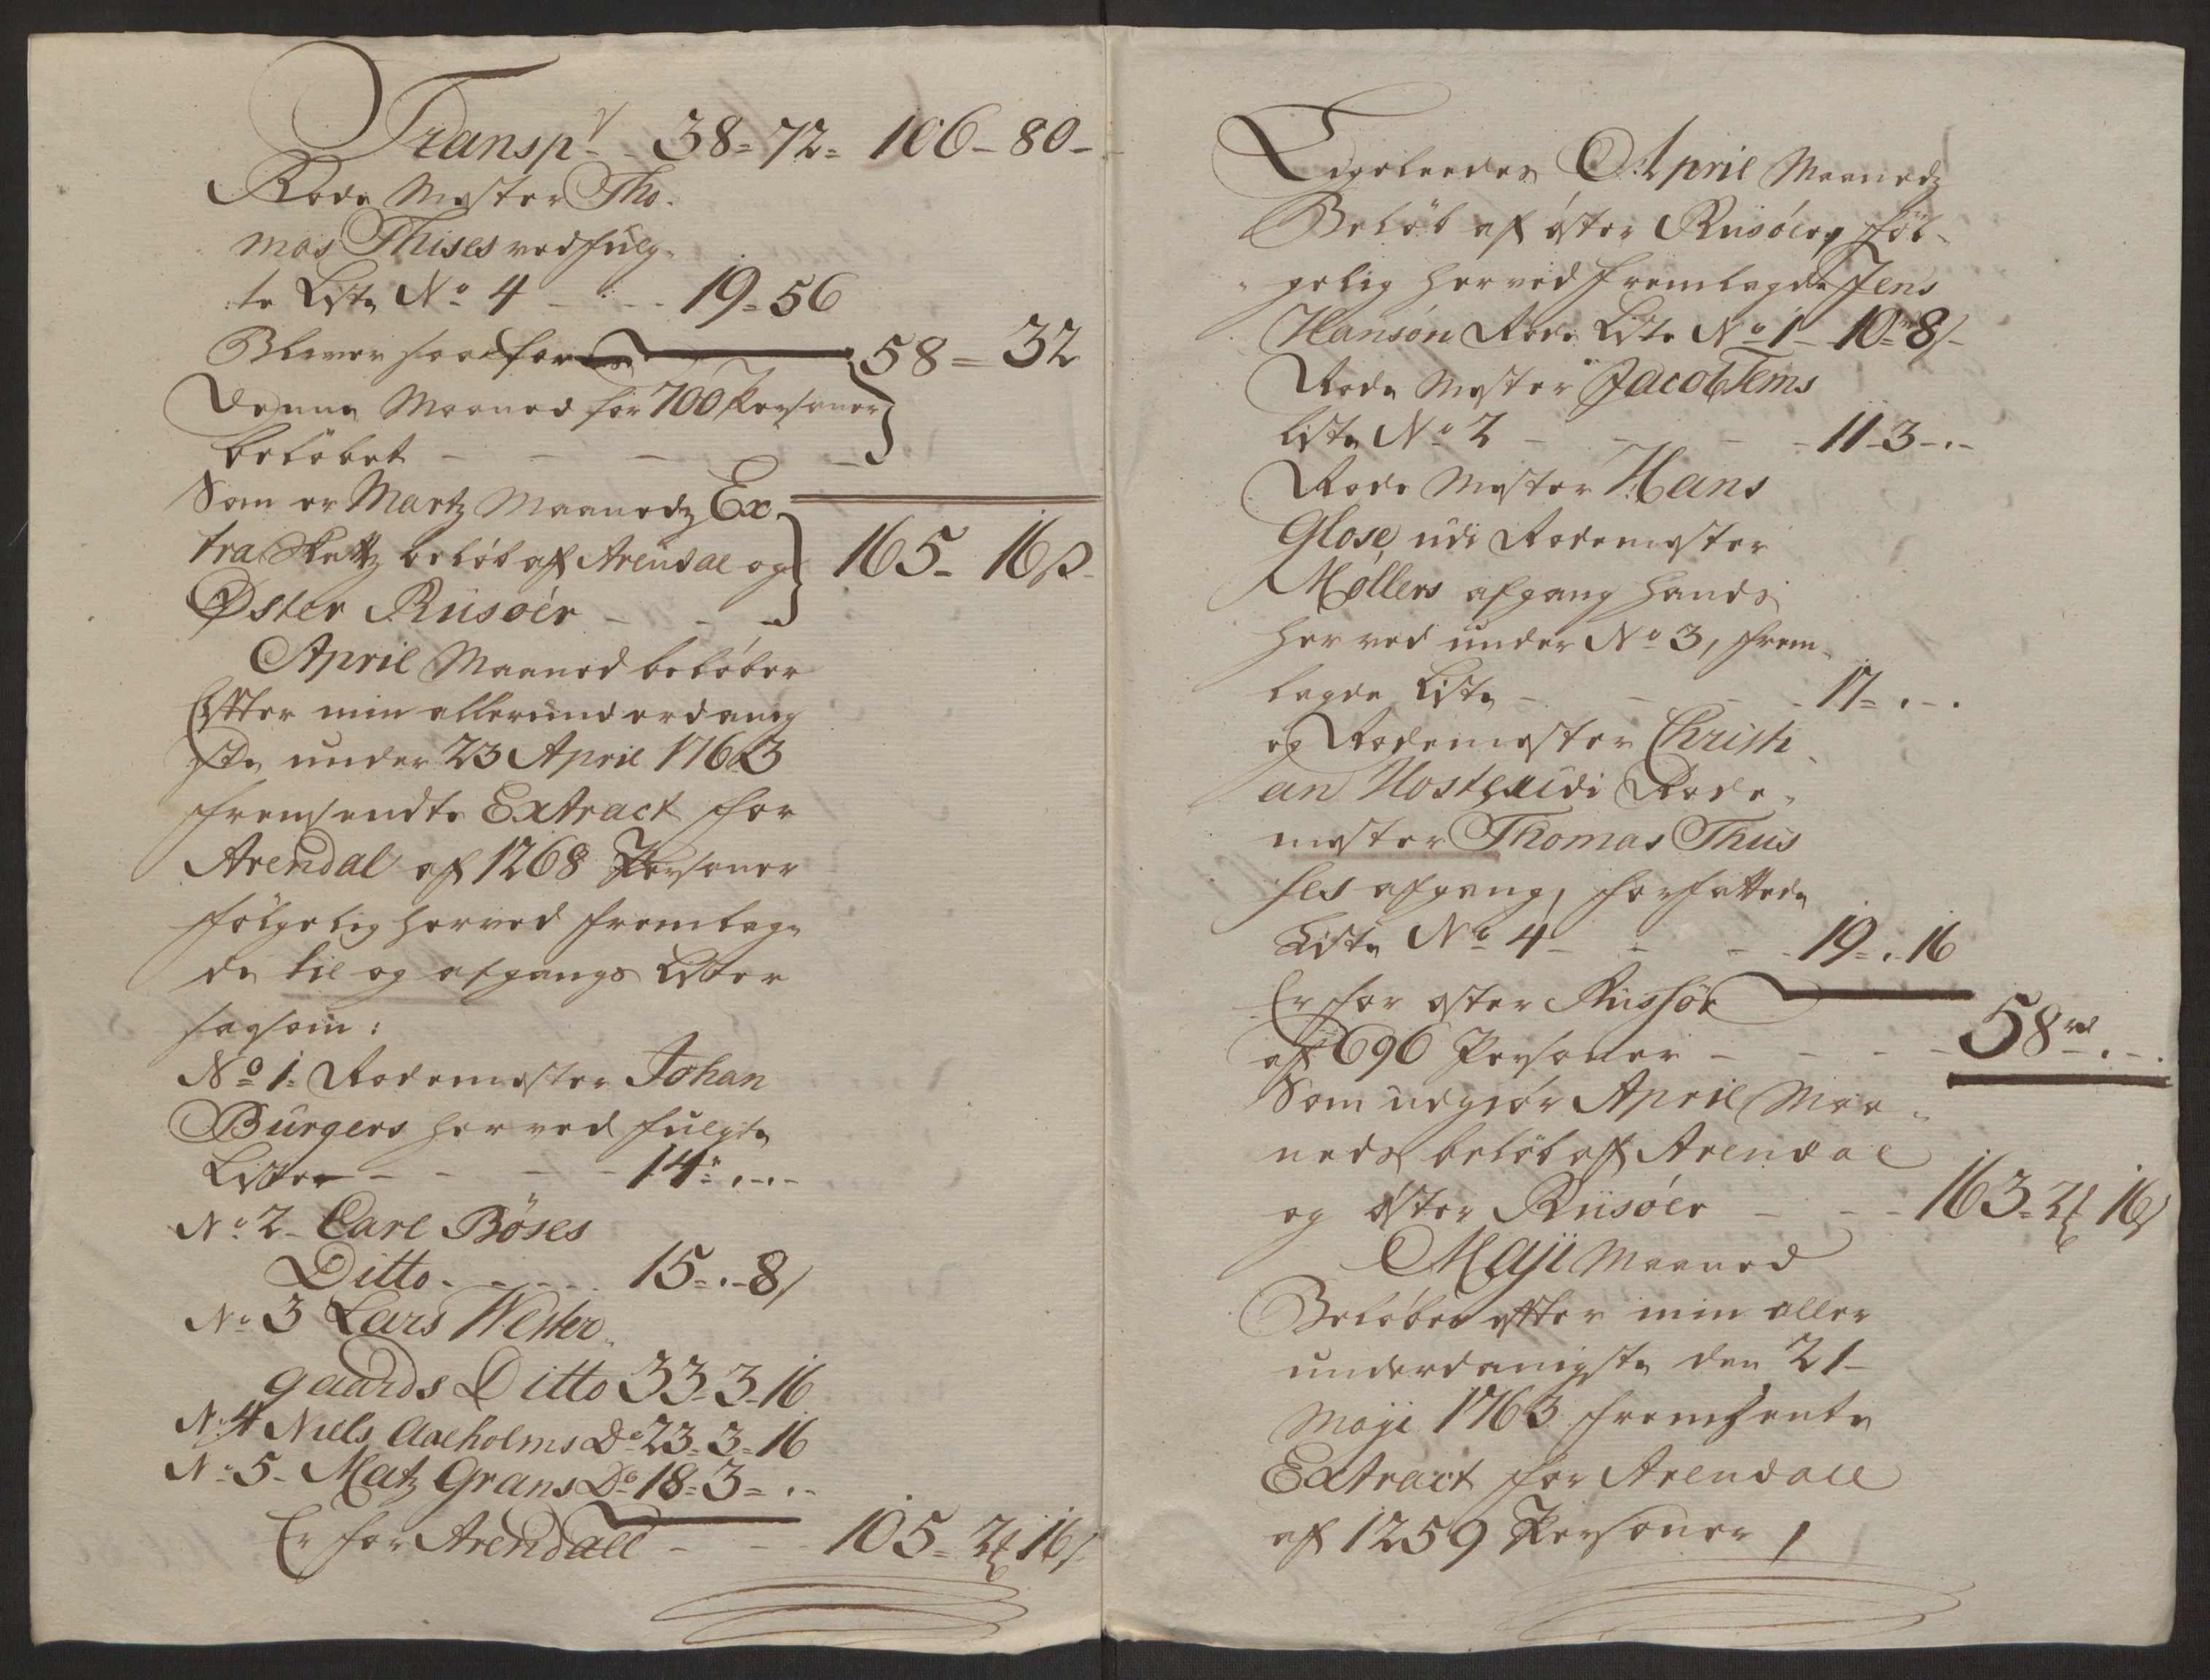 Transpt - 38 = 72 = 106 - 80 -
Rode Mester Tho-
mas Thises vedfulg-
te Liste No 4 - - - 19 = 56
Bliver saa for
58 = 32
Denne Maaned for 700 Personer
beløbet - - - -
Som er Martz Maanedz Ex
tra Skattz beløb af Arendal og
Øster Riisöer - - -
165 - 16 s
April Maaned beløber
Efter min allerunderdanig
ste under 23 April 1763
fremsendte Extract for
Arendal af 1268 Personer
følgelig herved fremlag-
de til og afgangs Lister
sasom:
No 1. Rodemester Johan
Bürgers herved fulgte
Lister - - - - 14 r . - . -
No 2 - Carl Böses
Ditto - - - - 15 = . - 8 s
No 3 Lars Wester-
gaards Ditto 33 - 3 - 16
No 4 Niels Aaeholms Do 23 = 3 = 16
No 5 - Matz Grans Do 18 = 3 = . -
Er for Arendall - - - 105 = 2 16 s
Ligeleedes April Maanedz
Beløb af öster Riisöer, föl-
gelig herved fremlagde Jens
Hanson Rode Liste No 1 - 10 = 8 s -
Rode Mester Jacob Tems
Liste No 2 - - - - 11 - 3 - . -
Rode Mester Hans
Glose, udi Rodemester
Møllers afgang hands
her ved under No 3, frem-
lagde Liste - - - - 17 = . - .
og Rodemester Christi
an Hosts udi Rode-
mester Thomas Thiis
ses afgang, forfattede
Liste No 4 - - - 19 = . 16
Er for öster Riissöe
af 696 Personer - - - - 58 rd . - .
Som udgiör April Maa-
neds beløb af Arendal
og öster Riisöer - - - 163 = 2 16 s
Maji Maaned
Beløber efter min aller
underdanigste den 21 -
Maji 1763 fremsente
Extract for Arendall
af 1259 Personer,